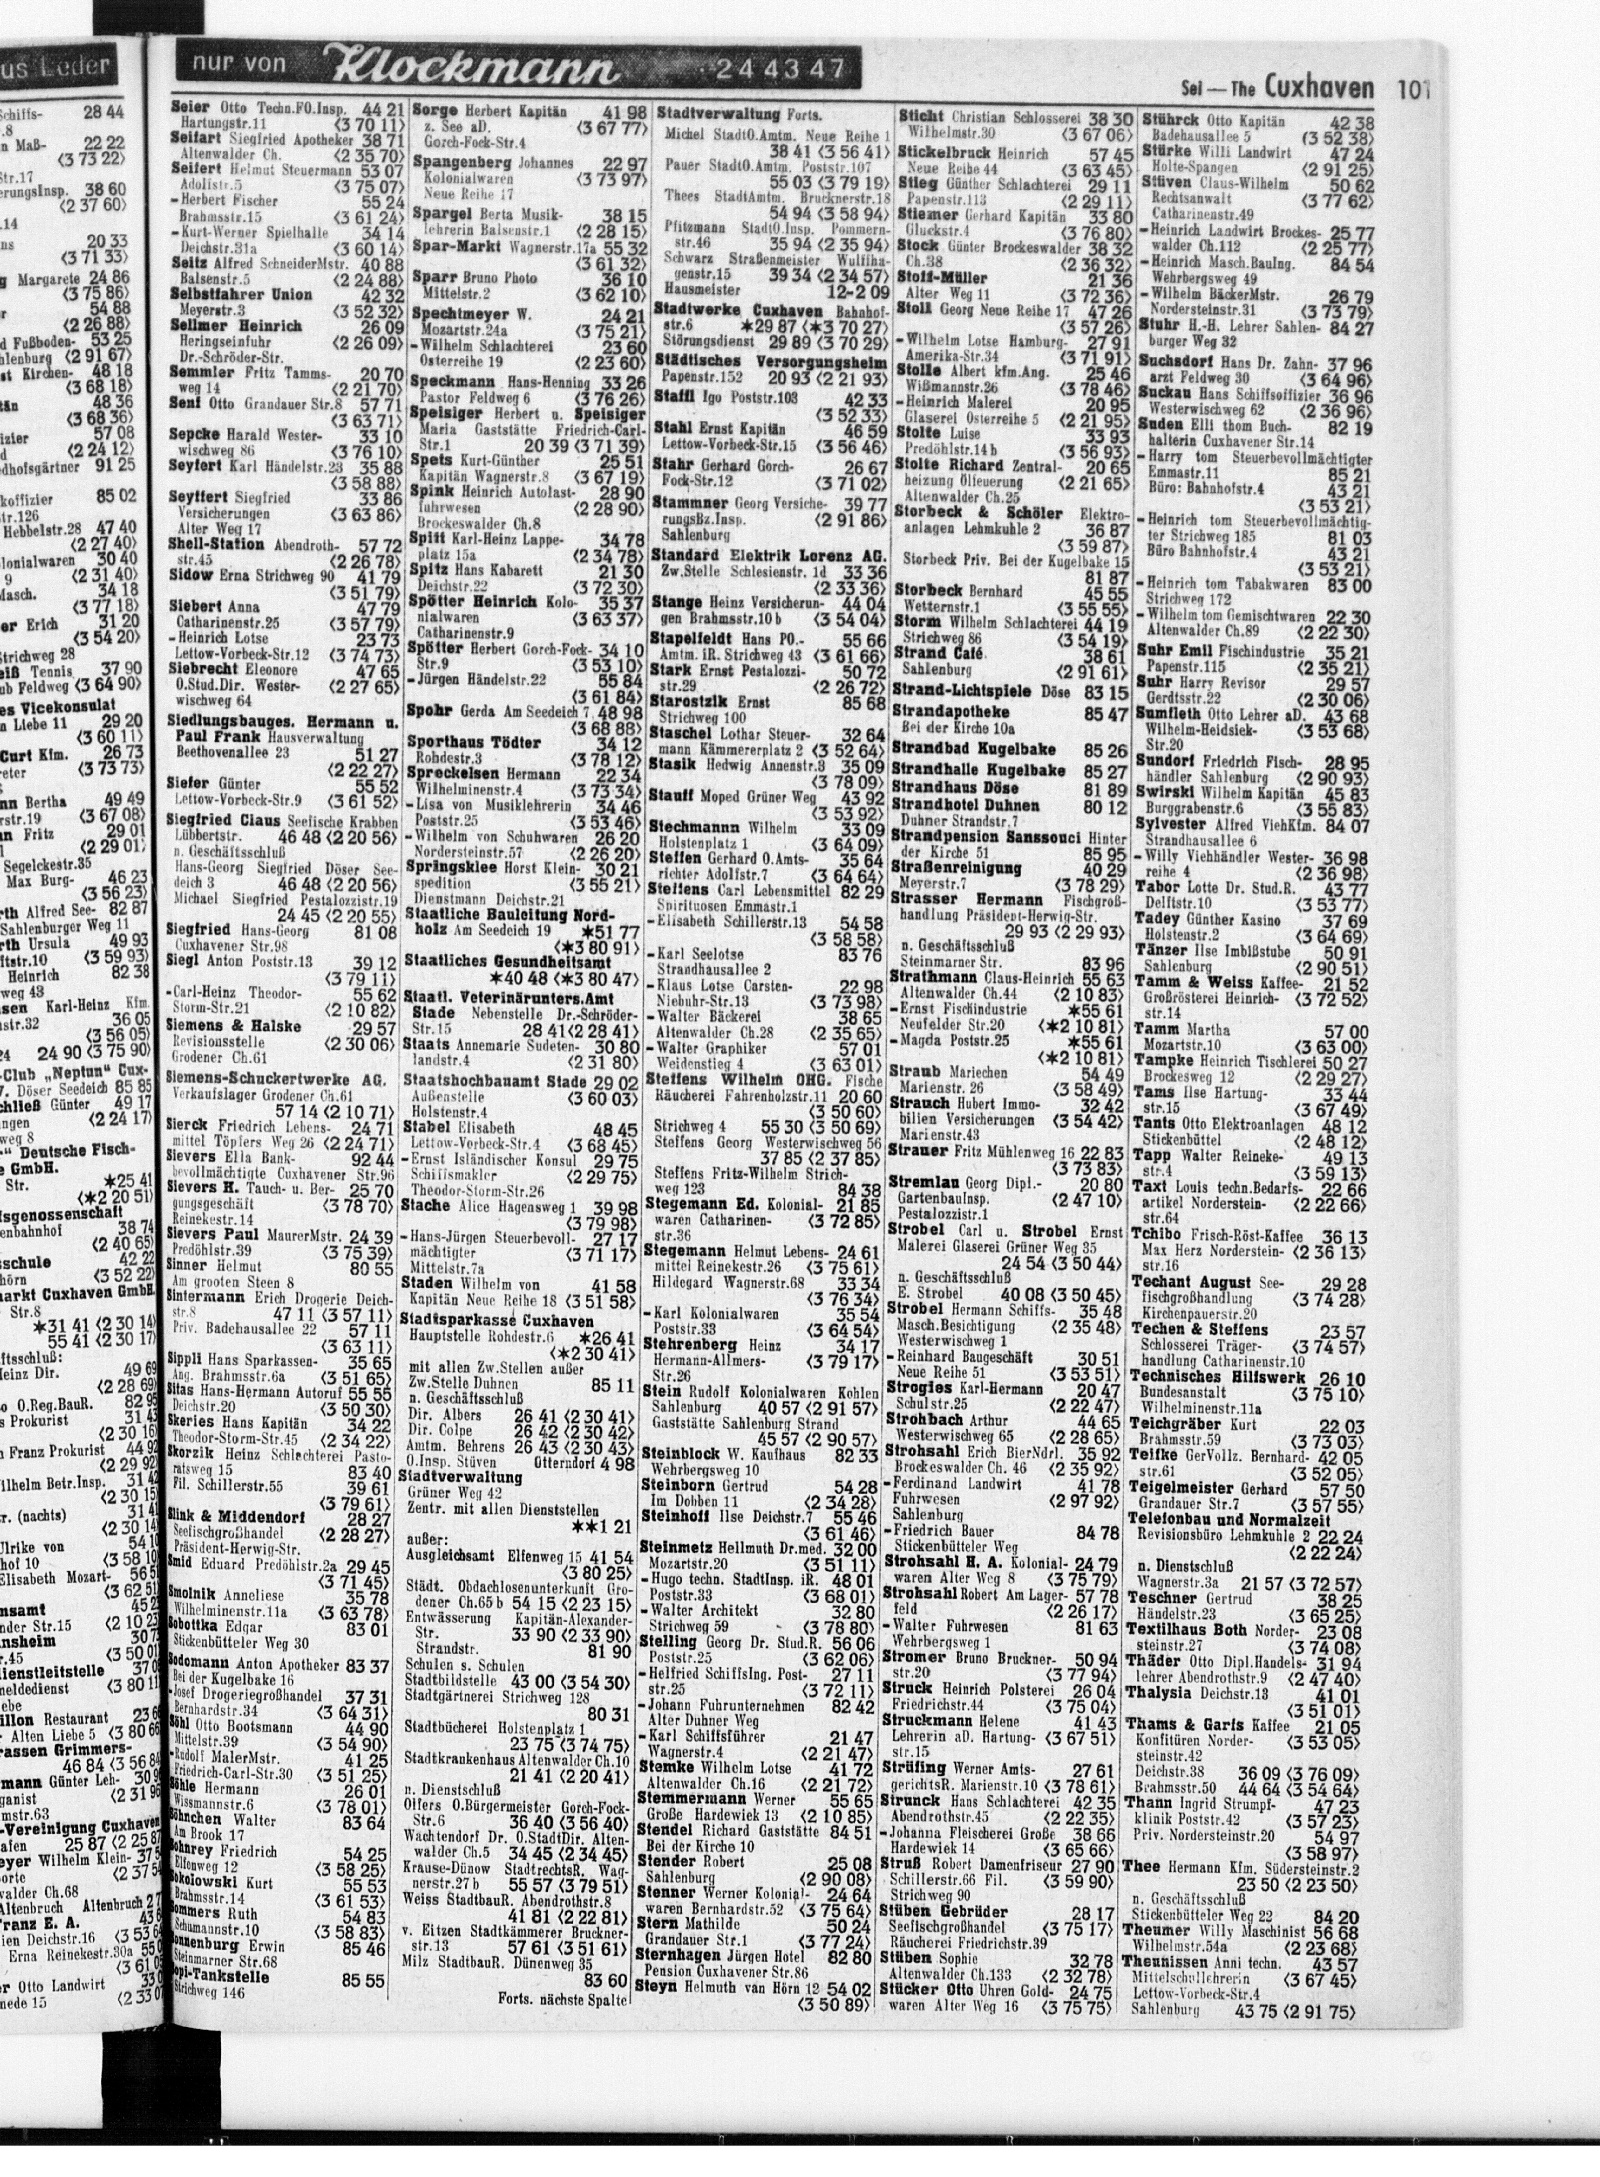 us Leder
nur von Klockmann 24 43 47
Sei — The Cuxhaven 101
Schiffs- 28 44
n Maß- 22 22
⟨3 73 22⟩
Str.17
erungsInsp. 38 60
⟨2 37 60⟩
.14
ns 20 33
⟨3 71 33⟩
g Margarete 24 86
⟨3 75 86⟩
r 54 88
⟨2 26 88⟩
d Fußboden- 53 25
hlenburg ⟨2 91 67⟩
st Kirchen- 48 18
⟨3 68 18⟩
tän 48 36
⟨3 68 36⟩
izier 57 08
d ⟨2 24 12⟩
dhofsgärtner 91 25
koffizier 85 02
tr.126
Hebbelstr.28 47 40
⟨2 27 40⟩
lonialwaren 30 40
9 ⟨2 31 40⟩
Masch. 34 18
⟨3 77 18⟩
er Erich 31 20
⟨3 54 20⟩
Strichweg 28
eiß Tennis 37 90
ub Feldweg ⟨3 64 90⟩
es Vicekonsulat
n Liebe 11 29 20
⟨3 60 11⟩
Curt Kfm. 26 73
eter ⟨3 73 73⟩
nn Bertha 49 49
rstr.19 ⟨3 67 08⟩
un Fritz 29 01
⟨2 29 01⟩
Segelckestr.35
Max Burg- 46 23
⟨3 56 23⟩
rth Alfred See- 82 87
Sahlenburger Weg 11
rth Ursula 49 93
ftstr.10 ⟨3 59 93⟩
Heinrich 82 38
weg 43
sen Karl-Heinz Kfm.
nstr.32 36 05
⟨3 56 05⟩
24 24 90 ⟨3 75 90⟩
-Club „Neptun“ Cux-
7. Döser Seedeich 85 85
chließ Günter 49 17
ngen ⟨2 24 17⟩
weg 8
-“ Deutsche Fisch-
e GmbH.
Str. ✶25 41
⟨✶2 20 51⟩
sgenossenschaft
enbahnhof 38 74
⟨2 40 65⟩
schule 42 22
hörn ⟨3 52 22⟩
arkt Cuxhaven GmbH.
Str.8
✶31 41 ⟨2 30 14⟩
55 41 ⟨2 30 17⟩
Seier Otto Techn.FO.Insp. 44 21
Hartungstr.11 ⟨3 70 11⟩
Seifart Siegfried Apotheker 38 71
Altenwalder Ch. ⟨2 35 70⟩
Seifert Helmut Steuermann 53 07
Adolfstr.5 ⟨3 75 07⟩
-Herbert Fischer 55 24
Brahmsstr.15 ⟨3 61 24⟩
-Kurt-Werner Spielhalle 34 14
Deichstr.31a ⟨3 60 14⟩
Seitz Alfred SchneiderMstr. 40 88
Balsenstr.5 ⟨2 24 88⟩
Selbstfahrer Union 42 32
Meyerstr.3 ⟨3 52 32⟩
Sellmer Heinrich 26 09
Heringseinfuhr ⟨2 26 09⟩
Dr.-Schröder-Str.
Semmler Fritz Tamms- 20 70
weg 14 ⟨2 21 70⟩
Senf Otto Grandauer Str.8 57 71
⟨3 63 71⟩
Sepcke Harald Wester- 33 10
wischweg 86 ⟨3 76 10⟩
Seyfert Karl Händelstr.23 35 88
⟨3 58 88⟩
Seyffert Siegfried 33 86
Versicherungen ⟨3 63 86⟩
Alter Weg 17
Shell-Station Abendroth- 57 72
str.45 ⟨2 26 78⟩
Sidow Erna Strichweg 90 41 79
⟨3 51 79⟩
Siebert Anna 47 79
Catharinenstr.25 ⟨3 57 79⟩
-Heinrich Lotse 23 73
Lettow-Vorbeck-Str.12 ⟨3 74 73⟩
Siebrecht Eleonore 47 65
O.Stud.Dir. Wester- ⟨2 27 65⟩
wischweg 64
Siedlungsbauges. Hermann u.
Paul Frank Hausverwaltung
Beethovenallee 23 51 27
⟨2 22 27⟩
Siefer Günter 55 52
Lettow-Vorbeck-Str.9 ⟨3 61 52⟩
Siegfried Claus Seefische Krabben
Lübbertstr. 46 48 ⟨2 20 56⟩
n. Geschäftsschluß
Hans-Georg Siegfried Döser See-
deich 3 46 48 ⟨2 20 56⟩
Michael Siegfried Pestalozzistr.19
24 45 ⟨2 20 55⟩
Siegfried Hans-Georg 81 08
Cuxhavener Str.98
Siegl Anton Poststr.13 39 12
⟨3 79 11⟩
-Carl-Heinz Theodor- 55 62
Storm-Str.21 ⟨2 10 82⟩
Siemens & Halske 29 57
Revisionsstelle ⟨2 30 06⟩
Grodener Ch.61
Siemens-Schuckertwerke AG.
Verkaufslager Grodener Ch.61
57 14 ⟨2 10 71⟩
Sierck Friedrich Lebens- 24 71
mittel Töpfers Weg 26 ⟨2 24 71⟩
Sievers Ella Bank- 92 44
bevollmächtigte Cuxhavener Str.96
Sievers H. Tauch- u. Ber- 25 70
gungsgeschäft ⟨3 78 70⟩
Reinekestr.14
Sievers Paul MaurerMstr. 24 39
Predöhlstr.39 ⟨3 75 39⟩
Sinner Helmut 80 55
Am grooten Steen 8
Sintermann Erich Drogerie Deich-
str.8 47 11 ⟨3 57 11⟩
Priv. Badehausallee 22 57 11
⟨3 63 11⟩
Sippli Hans Sparkassen- 35 65
Ang. Brahmsstr.6a ⟨3 51 65⟩
Sitas Hans-Hermann Autoruf 55 55
Deichstr.20 ⟨3 50 30⟩
Skeries Hans Kapitän 34 22
Theodor-Storm-Str.45 ⟨2 34 22⟩
Skorzik Heinz Schlechterei Pasto-
ratsweg 15 83 40
Fil. Schillerstr.55 39 61
⟨3 79 61⟩
Slink & Middendorf 28 27
Seefischgroßhandel ⟨2 28 27⟩
Präsident-Herwig-Str.
Smid Eduard Predöhlstr.2a 29 45
⟨3 71 45⟩
Smolnik Anneliese 35 78
Wilhelminenstr.11a ⟨3 63 78⟩
Sobottka Edgar 83 01
Stickenbütteler Weg 30
Sodomann Anton Apotheker 83 37
Bei der Kugelbake 16
-Josef Drogeriegroßhandel 37 31
Bernhardstr.34 ⟨3 64 31⟩
Söhl Otto Bootsmann 44 90
Mittelstr.39 ⟨3 54 90⟩
-Rudolf MalerMstr. 41 25
Friedrich-Carl-Str.30 ⟨3 51 25⟩
Söhle Hermann 26 01
Wissmannstr.6 ⟨3 78 01⟩
Söhnchen Walter 83 64
Am Brook 17
Sohnrey Friedrich 54 25
Elfenweg 12 ⟨3 58 25⟩
Sokolowski Kurt 55 53
Brahmsstr.14 ⟨3 61 53⟩
Sommers Ruth 54 83
Schumannstr.10 ⟨3 58 83⟩
Sonnenburg Erwin 85 46
Steinmarner Str.68
Sopi-Tankstelle 85 55
Strichweg 146
Sorge Herbert Kapitän 41 98
z. See aD. ⟨3 67 77⟩
Gorch-Fock-Str.4
Spangenberg Johannes 22 97
Kolonialwaren ⟨3 73 97⟩
Neue Reihe 17
Spargel Berta Musik- 38 15
lehrerin Balsenstr.1 ⟨2 28 15⟩
Spar-Markt Wagnerstr.17a 55 32
⟨3 61 32⟩
Sparr Bruno Photo 36 10
Mittelstr.2 ⟨3 62 10⟩
Spechtmeyer W. 24 21
Mozartstr.24a ⟨3 75 21⟩
-Wilhelm Schlachterei 23 60
Osterreihe 19 ⟨2 23 60⟩
Speckmann Hans-Henning 33 26
Pastor Feldweg 6 ⟨3 76 26⟩
Speisiger Herbert u. Speisiger
Maria Gaststätte Friedrich-Carl-
Str.1 20 39 ⟨3 71 39⟩
Spets Kurt-Günther 25 51
Kapitän Wagnerstr.8 ⟨3 67 19⟩
Spink Heinrich Autolast- 28 90
fuhrwesen ⟨2 28 90⟩
Brockeswalder Ch.8
Spitt Karl-Heinz Lappe- 34 78
platz 15a ⟨2 34 78⟩
Spitz Hans Kabarett 21 30
Deichstr.22 ⟨3 72 30⟩
Spötter Heinrich Kolo- 35 37
nialwaren ⟨3 63 37⟩
Catharinenstr.9
Spötter Herbert Gorch-Fock- 34 10
Str.9 ⟨3 53 10⟩
-Jürgen Händelstr.22 55 84
⟨3 61 84⟩
Spohr Gerda Am Seedeich 7 48 98
⟨3 68 88⟩
Sporthaus Tödter 34 12
Rohdestr.3 ⟨3 78 12⟩
Spreckelsen Hermann 22 34
Wilhelminenstr.4 ⟨3 73 34⟩
-Lisa von Musiklehrerin 34 46
Poststr.25 ⟨3 53 46⟩
-Wilhelm von Schuhwaren 26 20
Nordersteinstr.57 ⟨2 26 20⟩
Sprängsklee Horst Klein- 30 21
spedition ⟨3 55 21⟩
Dienstmann Deichstr.21
Staatliche Bauleitung Nord-
holz Am Seedeich 19 ✶51 77
⟨✶3 80 91⟩
Staatliches Gesundheitsamt
✶40 48 ⟨✶3 80 47⟩
Staatl. Veterinärunters.Amt
Stade Nebenstelle Dr.-Schröder-
Str.15 28 41⟨2 28 41⟩
Staats Annemarie Sudeten- 30 80
landstr.4 ⟨2 31 80⟩
Staatshochbauamt Stade 29 02
Außenstelle ⟨3 60 03⟩
Holstenstr.4
Stabel Elisabeth 48 45
Lettow-Vorbeck-Str.4 ⟨3 68 45⟩
-Ernst Isländischer Konsul 29 75
Schiffsmakler ⟨2 29 75⟩
Theodor-Storm-Str.26
Stache Alice Hagensweg 1 39 98
⟨3 79 98⟩
-Hans-Jürgen Steuerbevoll- 27 17
mächtigter ⟨3 71 17⟩
Mittelstr.7a
Staden Wilhelm von 41 58
Kapitän Neue Reihe 18 ⟨3 51 58⟩
Stadtsparkasse Cuxhaven
Hauptstelle Rohdestr.6 ✶26 41
⟨✶2 30 41⟩
mit allen Zw.Stellen außer
Zw.Stelle Duhnen 85 11
n. Geschäftsschluß
Dir. Albers 26 41 ⟨2 30 41⟩
Dir. Colpe 26 42 ⟨2 30 42⟩
Amtm. Behrens 26 43 ⟨2 30 43⟩
O.Insp. Stüven Otterndorf 4 98
Stadtverwaltung
Grüner Weg 42
Zentr. mit allen Dienststellen
✶✶1 21
außer:
Ausgleichsamt Elfenweg 15 41 54
⟨3 80 25⟩
Städt. Obdachlosenunterkunft Gro-
dener Ch.65b 54 15 ⟨2 23 15⟩
Entwässerung Kapitän-Alexander-
Str. 33 90 ⟨2 33 90⟩
Strandstr. 81 90
Schulen s. Schulen
Stadtbildstelle 43 00 ⟨3 54 30⟩
Stadtgärtnerei Strichweg 128
80 31
Stadtbücherei Holstenplatz 1
23 75 ⟨3 74 75⟩
Stadtkrankenhaus Altenwalder Ch.10
21 41 ⟨2 20 41⟩
n. Dienstschluß
Olfers O.Bürgermeister Gorch-Fock-
Str.6 36 40 ⟨3 56 40⟩
Wachtendorf Dr. O.StadtDir. Alten-
walder Ch.5 34 45 ⟨2 34 45⟩
Krause-Dünow StadtrechtsR. Wag-
nerstr.27b 55 57 ⟨3 79 51⟩
Weiss StadtbauR. Abendrothstr.8
41 81 ⟨2 22 81⟩
v. Eitzen Stadtkämmerer Bruckner-
str.13 57 61 ⟨3 51 61⟩
Milz StadtbauR. Dünenweg 35
83 60
Forts. nächste Spalte
Stadtverwaltung Forts.
Michel StadtO.Amtm. Neue Reihe 1
38 41 ⟨3 56 41⟩
Pauer StadtO.Amtm. Poststr.107
55 03 ⟨3 79 19⟩
Thees StadtAmtm. Brucknerstr.18
54 94 ⟨3 58 94⟩
Pfitzmann StadtO.Insp. Pommern-
str.46 35 94 ⟨2 35 94⟩
Schwarz Straßenmeister Wulffha-
genstr.15 39 34 ⟨2 34 57⟩
Hausmeister 12-2 09
Stadtwerke Cuxhaven Bahnhof-
str.6 ✶29 87 ⟨✶3 70 27⟩
Störungsdienst 29 89 ⟨3 70 29⟩
Städtisches Versorgungsheim
Papenstr.152 20 93 ⟨2 21 93⟩
Staffl Igo Poststr.103 42 33
⟨3 52 33⟩
Stahl Ernst Kapitän 46 59
Lettow-Vorbeck-Str.15 ⟨3 56 46⟩
Stahr Gerhard Gorch- 26 67
Fock-Str.12 ⟨3 71 02⟩
Stammner Georg Versiche- 39 77
rungsBz.Insp. ⟨2 91 86⟩
Sahlenburg
Standard Elektrik Lorenz AG.
Zw.Stelle Schlesienstr. 1d 33 36
⟨2 33 36⟩
Stange Heinz Versicherun- 44 04
gen Brahmsstr.10b ⟨3 54 04⟩
Stapelfeldt Hans PO.- 55 66
Amtm. iR. Strichweg 43 ⟨3 61 66⟩
Stark Ernst Pestalozzi- 50 72
str.29 ⟨2 26 72⟩
Starostzik Ernst 85 68
Strichweg 100
Staschel Lothar Steuer- 32 64
mann Kämmererplatz 2 ⟨3 52 64⟩
Stasik Hedwig Annenstr.3 35 09
⟨3 78 09⟩
Stauff Moped Grüner Weg 43 92
⟨3 53 92⟩
Stechmannn Wilhelm 33 09
Holstenplatz 1 ⟨3 64 09⟩
Steffen Gerhard O.Amts- 35 64
richter Adolfstr.7 ⟨3 64 64⟩
Steffens Carl Lebensmittel 82 29
Spirituosen Emmastr.1
-Elisabeth Schillerstr.13 54 58
⟨3 58 58⟩
-Karl Seelotse 83 76
Strandhausallee 2
-Klaus Lotse Carsten- 22 98
Niebuhr-Str.13 ⟨3 73 98⟩
-Walter Bäckerei 38 65
Altenwalder Ch.28 ⟨2 35 65⟩
-Walter Graphiker 57 01
Weidenstieg 4 ⟨3 63 01⟩
Steffens Wilhelm OHG. Fische
Räucherei Fahrenholzstr.11 20 60
⟨3 50 60⟩
Strichweg 4 55 30 ⟨3 50 69⟩
Steffens Georg Westerwischweg 56
37 85 ⟨2 37 85⟩
Steffens Fritz-Wilhelm Strich-
weg 123 84 38
Stegemann Ed. Kolonial- 21 85
waren Catharinen- ⟨3 72 85⟩
str.36
Stegemann Helmut Lebens- 24 61
mittel Reinekestr.26 ⟨3 75 61⟩
Hildegard Wagnerstr.68 33 34
⟨3 76 34⟩
-Karl Kolonialwaren 35 54
Poststr.33 ⟨3 64 54⟩
Stehrenberg Heinz 34 17
Hermann-Allmers- ⟨3 79 17⟩
Str.26
Stein Rudolf Kolonialwaren Kohlen
Sahlenburg 40 57 ⟨2 91 57⟩
Gaststätte Sahlenburg Strand
45 57 ⟨2 90 57⟩
Steinblock W. Kaufhaus 82 33
Wehrbergsweg 10
Steinborn Gertrud 54 28
Im Dobben 11 ⟨2 34 28⟩
Steinhoff Ilse Deichstr.7 55 46
⟨3 61 46⟩
Steinmetz Hellmuth Dr.med. 32 00
Mozartstr.20 ⟨3 51 11⟩
-Hugo techn. StadtInsp. iR. 48 01
Poststr.33 ⟨3 68 01⟩
-Walter Architekt 32 80
Strichweg 59 ⟨3 78 80⟩
Stelling Georg Dr. Stud.R. 56 06
Poststr.25 ⟨3 62 06⟩
-Helfried SchiffsIng. Post- 27 11
str.25 ⟨3 72 11⟩
-Johann Fuhrunternehmen 82 42
Alter Duhner Weg
-Karl Schiffsführer 21 47
Wagnerstr.4 ⟨2 21 47⟩
Stemke Wilhelm Lotse 41 72
Altenwalder Ch.16 ⟨2 21 72⟩
Stemmermann Werner 55 65
Große Hardewiek 13 ⟨2 10 85⟩
Stendel Richard Gaststätte 84 51
Bei der Kirche 10
Stender Robert 25 08
Sahlenburg ⟨2 90 08⟩
Stenner Werner Kolonial- 24 64
waren Bernhardstr.52 ⟨3 75 64⟩
Stern Mathilde 50 24
Grandauer Str.1 ⟨3 77 24⟩
Sternhagen Jürgen Hotel 82 80
Pension Cuxhavener Str.86
Steyn Helmuth van Hörn 12 54 02
⟨3 50 89⟩
Sticht Christian Schlosserei 38 30
Wilhelmstr.30 ⟨3 67 06⟩
Stickelbruck Heinrich 57 45
Neue Reihe 44 ⟨3 63 45⟩
Stieg Günther Schlachterei 29 11
Papenstr.113 ⟨2 29 11⟩
Stiemer Gerhard Kapitän 33 80
Gluckstr.4 ⟨3 76 80⟩
Stock Günter Brockeswalder 38 32
Ch.38 ⟨2 36 32⟩
Stoff-Müller 21 36
Alter Weg 11 ⟨3 72 36⟩
Stoll Georg Neue Reihe 17 47 26
⟨3 57 26⟩
-Wilhelm Lotse Hamburg- 27 91
Amerika-Str.34 ⟨3 71 91⟩
Stolle Albert kfm.Ang. 25 46
Wißmannstr.26 ⟨3 78 46⟩
-Heinrich Malerei 20 95
Glaserei Osterreihe 5 ⟨2 21 95⟩
Stolte Luise 33 93
Predöhlstr.14b ⟨3 56 93⟩
Stolte Richard Zentral- 20 65
heizung Ölfeuerung ⟨2 21 65⟩
Altenwalder Ch.25
Storbeck & Schöler Elektro-
anlagen Lehmkuhle 2 36 87
⟨3 59 87⟩
Storbeck Priv. Bei der Kugelbake 15
81 87
Storbeck Bernhard 45 55
Wetternstr.1 ⟨3 55 55⟩
Storm Wilhelm Schlachterei 44 19
Strichweg 86 ⟨3 54 19⟩
Strand Café 38 61
Sahlenburg ⟨2 91 61⟩
Strand-Lichtspiele Döse 83 15
Strandapotheke 85 47
Bei der Kirche 10a
Strandbad Kugelbake 85 26
Strandhalle Kugelbake 85 27
Strandhaus Döse 81 89
Strandhotel Duhnen 80 12
Duhner Strandstr.7
Strandpension Sanssouci Hinter
der Kirche 51 85 95
Straßenreinigung 40 29
Meyerstr.7 ⟨3 78 29⟩
Strasser Hermann Fischgroß-
handlung Präsident-Herwig-Str.
29 93 ⟨2 29 93⟩
n. Geschäftsschluß
Steinmarner Str. 83 96
Strathmann Claus-Heinrich 55 63
Altenwalder Ch.44 ⟨2 10 83⟩
-Ernst Fischindustrie ✶55 61
Neufelder Str.20 ⟨✶2 10 81⟩
-Magda Poststr.25 ✶55 61
⟨✶2 10 81⟩
Straub Mariechen 54 49
Marienstr. 26 ⟨3 58 49⟩
Strauch Hubert Immo- 32 42
bilien Versicherungen ⟨3 54 42⟩
Marienstr.43
Strauer Fritz Mühlenweg 16 22 83
⟨3 73 83⟩
Stremlau Georg Dipl.- 20 80
GartenbauInsp. ⟨2 47 10⟩
Pestalozzistr.1
Strobel Carl u. Strobel Ernst
Malerei Glaserei Grüner Weg 35
24 54 ⟨3 50 44⟩
n. Geschäftsschluß
E. Strobel 40 08 ⟨3 50 45⟩
Strobel Hermann Schiffs- 35 48
Masch.Besichtigung ⟨2 35 48⟩
Westerwischweg 1
-Reinhard Baugeschäft 30 51
Neue Reihe 51 ⟨3 53 51⟩
Strogies Karl-Hermann 20 47
Schulstr.25 ⟨2 22 47⟩
Strohbach Arthur 44 65
Westerwischweg 65 ⟨2 28 65⟩
Strohsahl Erich BierNdrl. 35 92
Brockeswalder Ch. 46 ⟨2 35 92⟩
-Ferdinand Landwirt 41 78
Fuhrwesen ⟨2 97 92⟩
Sahlenburg
-Friedrich Bauer 84 78
Stickenbütteler Weg
Strohsahl H. A. Kolonial- 24 79
waren Alter Weg 8 ⟨3 75 79⟩
Strohsahl Robert Am Lager- 57 78
feld ⟨2 26 17⟩
-Walter Fuhrwesen 81 63
Wehrbergsweg 1
Stromer Bruno Bruckner- 50 94
str.20 ⟨3 77 94⟩
Struck Heinrich Polsterei 26 04
Friedrichstr.44 ⟨3 75 04⟩
Struckmann Helene 41 43
Lehrerin aD. Hartung- ⟨3 67 51⟩
str.15
Strüfing Werner Amts- 27 61
gerichtsR. Marienstr.10 ⟨3 78 61⟩
Strunck Hans Schlachterei 42 35
Abendrothstr.45 ⟨2 22 35⟩
-Johanna Fleischerei Große 38 66
Hardewiek 14 ⟨3 65 66⟩
Struß Robert Damenfriseur 27 90
Schillerstr.66 Fil. ⟨3 59 90⟩
Strichweg 90
Stüben Gebrüder 28 17
Seefischgroßhandel ⟨3 75 17⟩
Räucherei Friedrichstr.39
Stüben Sophie 32 78
Altenwalder Ch.133 ⟨2 32 78⟩
Stücker Otto Uhren Gold- 24 75
waren Alter Weg 16 ⟨3 75 75⟩
Stührck Otto Kapitän 42 38
Badehausallee 5 ⟨3 52 38⟩
Stürke Willi Landwirt 47 24
Holte-Spangen ⟨2 91 25⟩
Stüven Claus-Wilhelm 50 62
Rechtsanwalt ⟨3 77 62⟩
Catharinenstr.49
-Heinrich Landwirt Brockes- 25 77
walder Ch.112 ⟨2 25 77⟩
-Heinrich Masch.BauIng. 84 54
Wehrbergsweg 49
-Wilhelm BäckerMstr. 26 79
Nordersteinstr.31 ⟨3 73 79⟩
Stuhr H.-H. Lehrer Sahlen- 84 27
burger Weg 32
Suchsdorf Hans Dr. Zahn- 37 96
arzt Feldweg 30 ⟨3 64 96⟩
Suckau Hans Schiffsoffizier 36 96
Westerwischweg 62 ⟨2 36 96⟩
Suden Elli thom Buch- 82 19
halterin Cuxhavener Str.14
-Harry tom Steuerbevollmächtigter
Emmastr.11 85 21
Büro: Bahnhofstr.4 43 21
⟨3 53 21⟩
-Heinrich tom Steuerbevollmächtig-
ter Strichweg 185 81 03
Büro Bahnhofstr.4 43 21
⟨3 53 21⟩
-Heinrich tom Tabakwaren 83 00
Strichweg 172
-Wilhelm tom Gemischtwaren 22 30
Altenwalder Ch.89 ⟨2 22 30⟩
Suhr Emil Fischindustrie 35 21
Papenstr.115 ⟨2 35 21⟩
Suhr Harry Revisor 29 57
Gerdtsstr.22 ⟨2 30 06⟩
Sumfleth Otto Lehrer aD. 43 68
Wilhelm-Heidsiek- ⟨3 53 68⟩
Str.20
Sundorf Friedrich Fisch- 28 95
händler Sahlenburg ⟨2 90 93⟩
Swirski Wilhelm Kapitän 45 83
Burggrabenstr.6 ⟨3 55 83⟩
Sylvester Alfred ViehKfm. 84 07
Strandhausallee 6
-Willy Viehhändler Wester- 36 98
reihe 4 ⟨2 36 98⟩
Tabor Lotte Dr. Stud.R. 43 77
Delftstr.10 ⟨3 53 77⟩
Tadey Günther Kasino 37 69
Holstenstr.2 ⟨3 64 69⟩
Tänzer Ilse Imbißstube 50 91
Sahlenburg ⟨2 90 51⟩
Tamm & Weiss Kaffee- 21 52
Großrösterei Heinrich- ⟨3 72 52⟩
str.14
Tamm Martha 57 00
Mozartstr.10 ⟨3 63 00⟩
Tampke Heinrich Tischlerei 50 27
Brockesweg 12 ⟨2 29 27⟩
Tams Ilse Hartung- 33 44
str.15 ⟨3 67 49⟩
Tants Otto Elektroanlagen 48 12
Stickenbüttel ⟨2 48 12⟩
Tapp Walter Reineke- 49 13
str.4 ⟨3 59 13⟩
Taxt Louis techn.Bedarfs- 22 66
artikel Norderstein- ⟨2 22 66⟩
str.64
Tchibo Frisch-Röst-Kaffee 36 13
Max Herz Norderstein- ⟨2 36 13⟩
str.16
Techant August See- 29 28
fischgroßhandlung ⟨3 74 28⟩
Kirchenpauerstr.20
Techen & Steffens 23 57
Schlosserei Träger- ⟨3 74 57⟩
handlung Catharinenstr.10
Technisches Hilfswerk 26 10
Bundesanstalt ⟨3 75 10⟩
Wilhelminenstr.11a
Teichgräber Kurt 22 03
Brahmsstr.59 ⟨3 73 03⟩
Teifke GerVollz. Bernhard- 42 05
str.61 ⟨3 52 05⟩
Teigelmeister Gerhard 57 50
Grandauer Str.7 ⟨3 57 55⟩
Telefonbau und Normalzeit
Revisionsbüro Lehmkuhle 2 22 24
⟨2 22 24⟩
n. Dienstschluß
Wagnerstr.3a 21 57 ⟨3 72 57⟩
Teschner Gertrud 38 25
Händelstr.23 ⟨3 65 25⟩
Textilhaus Both Norder- 23 08
steinstr.27 ⟨3 74 08⟩
Thäder Otto Dipl.Handels- 31 94
lehrer Abendrothstr.9 ⟨2 47 40⟩
Thalysia Deichstr.13 41 01
⟨3 51 01⟩
Thams & Garfs Kaffee 21 05
Konfitüren Norder- ⟨3 53 05⟩
steinstr.42
Deichstr.38 36 09 ⟨3 76 09⟩
Brahmsstr.50 44 64 ⟨3 54 64⟩
Thann Ingrid Strumpf- 47 23
klinik Poststr.42 ⟨3 57 23⟩
Priv. Nordersteinstr.20 54 97
⟨3 58 97⟩
Thee Hermann Kfm. Südersteinstr.2
23 50 ⟨2 23 50⟩
n. Geschäftsschluß
Stickenbütteler Weg 22 84 20
Theumer Willy Maschinist 56 68
Wilhelmstr.54a ⟨2 23 68⟩
Theunissen Anni techn. 43 57
Mittelschullehrerin ⟨3 67 45⟩
Lettow-Vorbeck-Str.4
Sahlenburg 43 75 ⟨2 91 75⟩